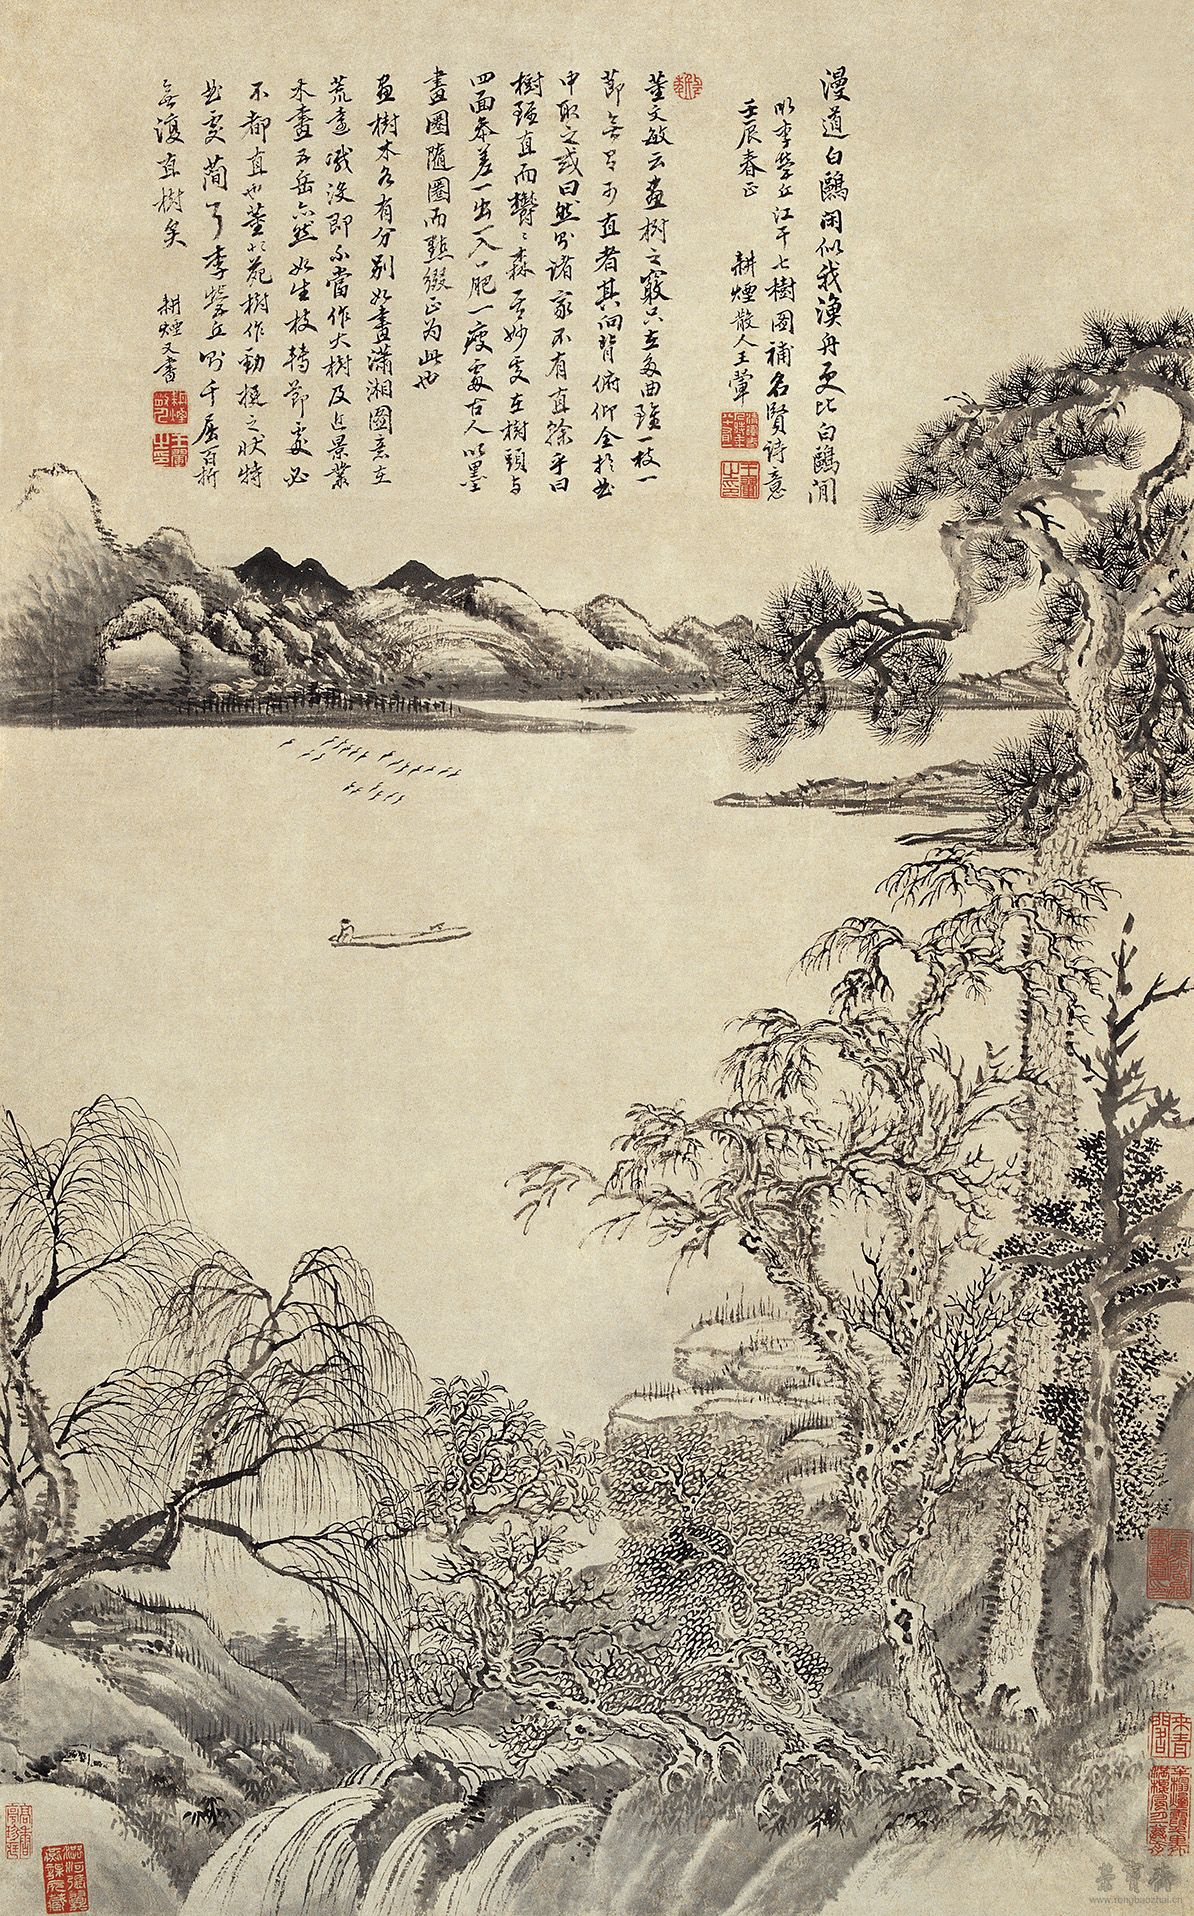 漫道白鷗閑似我漁舟更比白鷗閒
師李營丘江干七樹圖補名賢詩意
壬辰春正 耕煙散人王翬
董文敏云畫樹之竅只在多曲雖一枝一
節無有可直者其向背俯仰全於曲
中取之或曰然則諸家不有直條乎曰
樹雖直而欝欝森森妙處在樹頭與
四面參差一出一入一肥一瘦處古人以墨
畫圈隨圈而點綴正為此也
畫樹木各有分别如畫瀟湘圖意在
荒遠滅沒即不當作大樹及近景叢
木畫五岳亦然如生枝轉節處必
不都直也董北苑樹作勁挺之狀特
曲處簡耳李營丘則千屈百折
無復直樹矣 耕煙又書
榮寶齋
www.rongbaozhai.cn